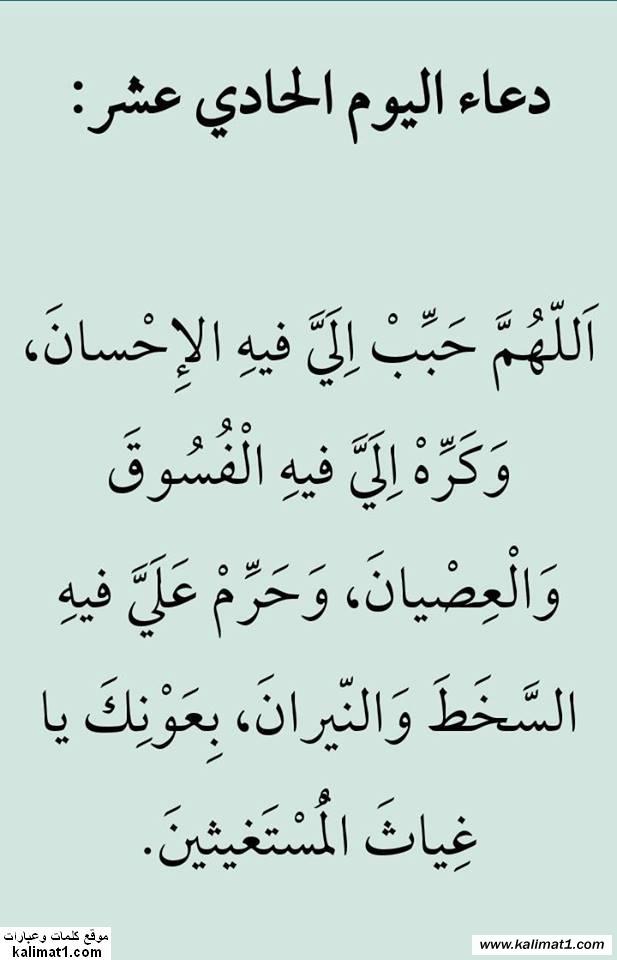 دعاء اليوم الحادي عشر:
اَللّهُمَّ حَبِّبْ اِلَيَّ فيهِ الإِحْسانَ،
وَكَرِّهْ اِلَيَّ فيهِ الْفُسُوقَ
وَالْعِصْيانَ، وَحَرِّمْ عَلَيَّ فيهِ
السَّخَطَ وَالنّيرانَ، بِعَوْنِكَ يا
غِياثَ الْمُسْتَغيثينَ.
موقع كلمات وعبارات
kalimat1.com
www.kalimat1.com